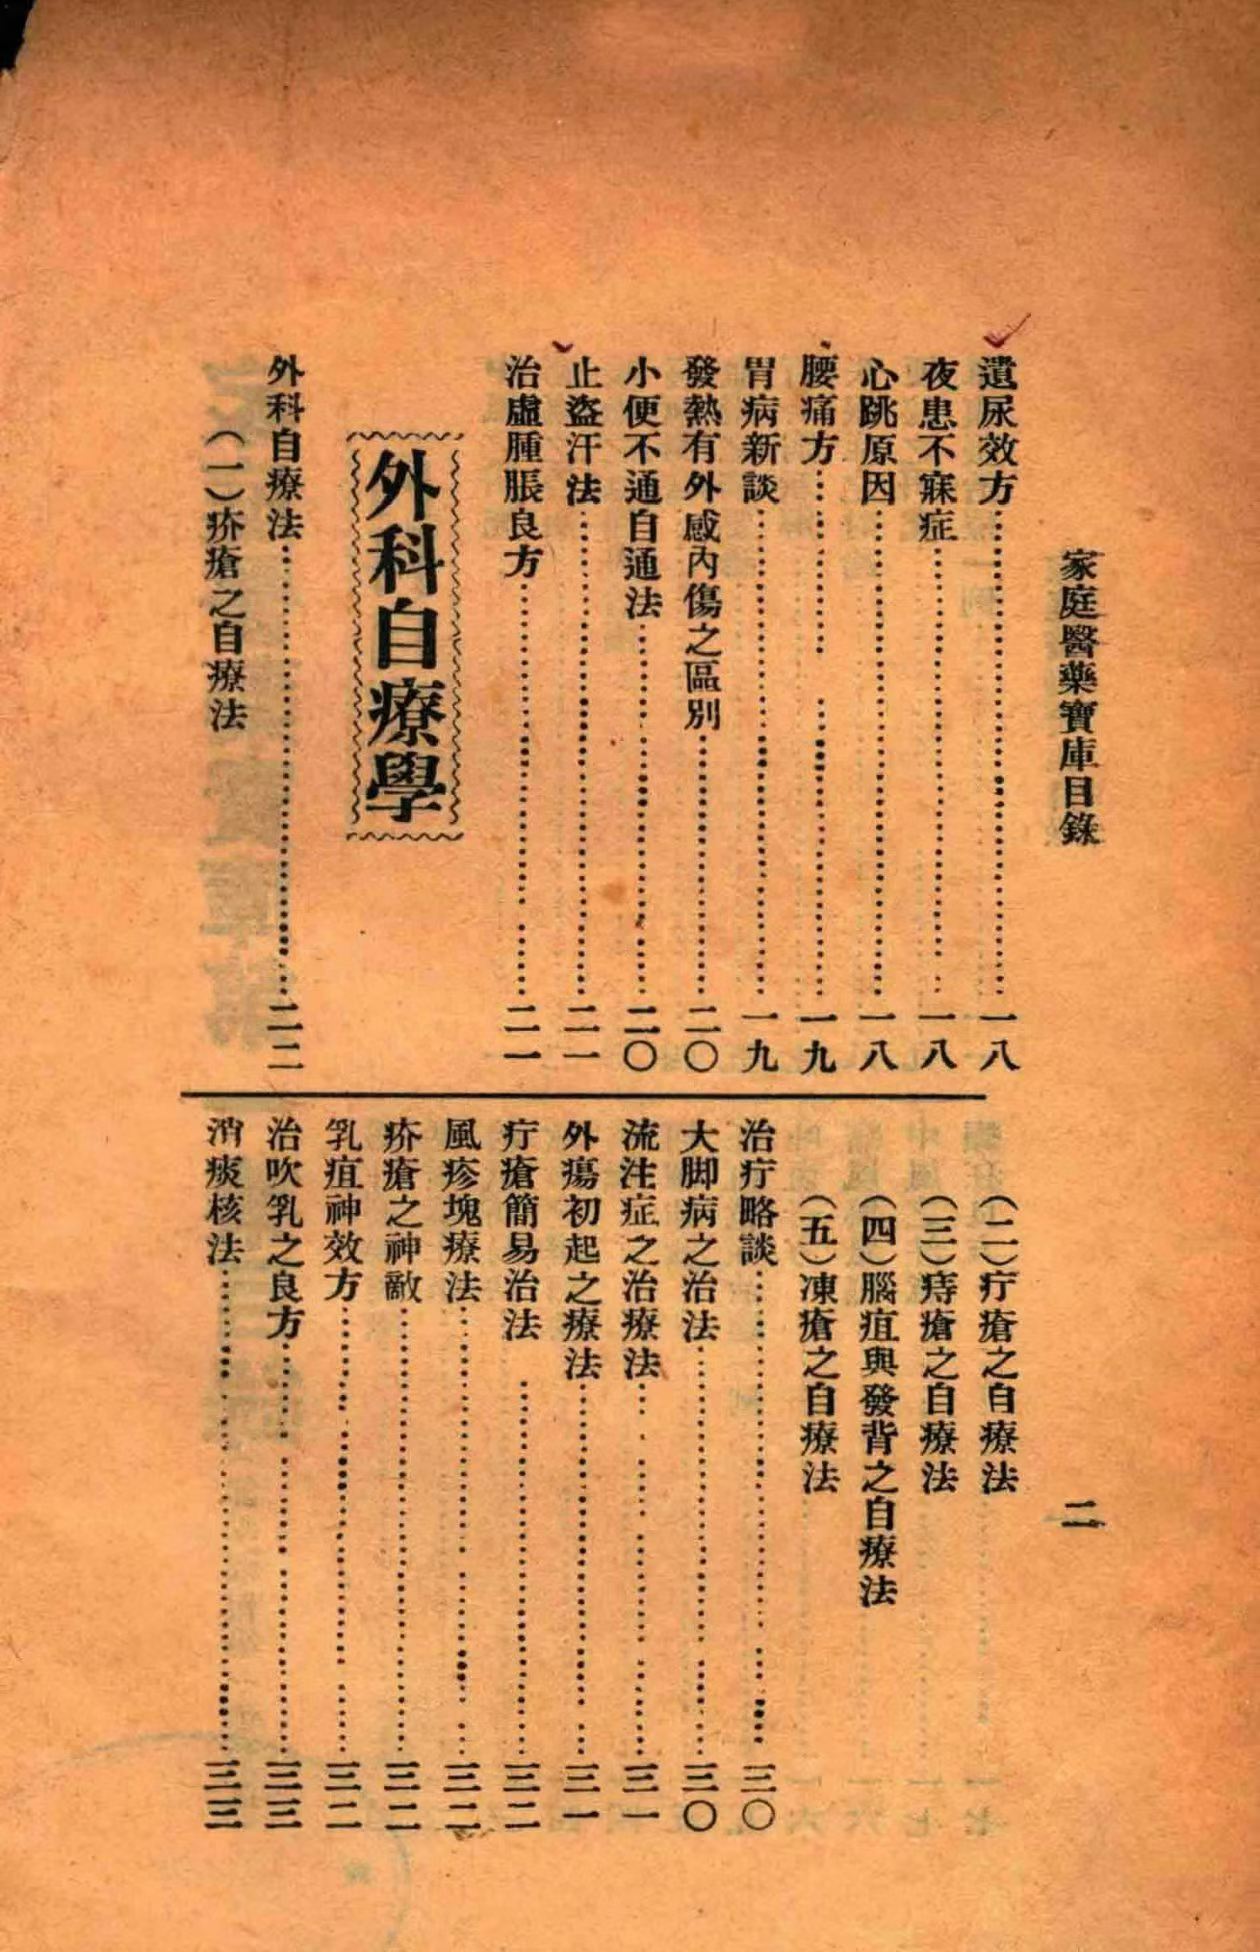 家庭醫藥寶庫目錄
二
遺尿效方…………一八
夜患不寐症…………一八
心跳原因…………一八
腰痛方…………一九
胃病新談…………一九
發熱有外感內傷之區別…………二〇
小便不通自通法…………二〇
止盜汗法…………二一
治虛腫脹良方…………二一
外科自療學
外科自療法…………二二
（一）疥瘡之自療法
（二）疔瘡之自療法
（三）痔瘡之自療法
（四）腦疽與發背之自療法
（五）凍瘡之自療法
治疔略談…………三〇
大脚病之治法…………三〇
流注症之治療法…………三一
外瘍初起之療法…………三一
疔瘡簡易治法…………三二
風疹塊療法…………三二
疥瘡之神敵…………三二
乳疽神效方…………三二
治吹乳之良方…………三三
消痰核法…………三三